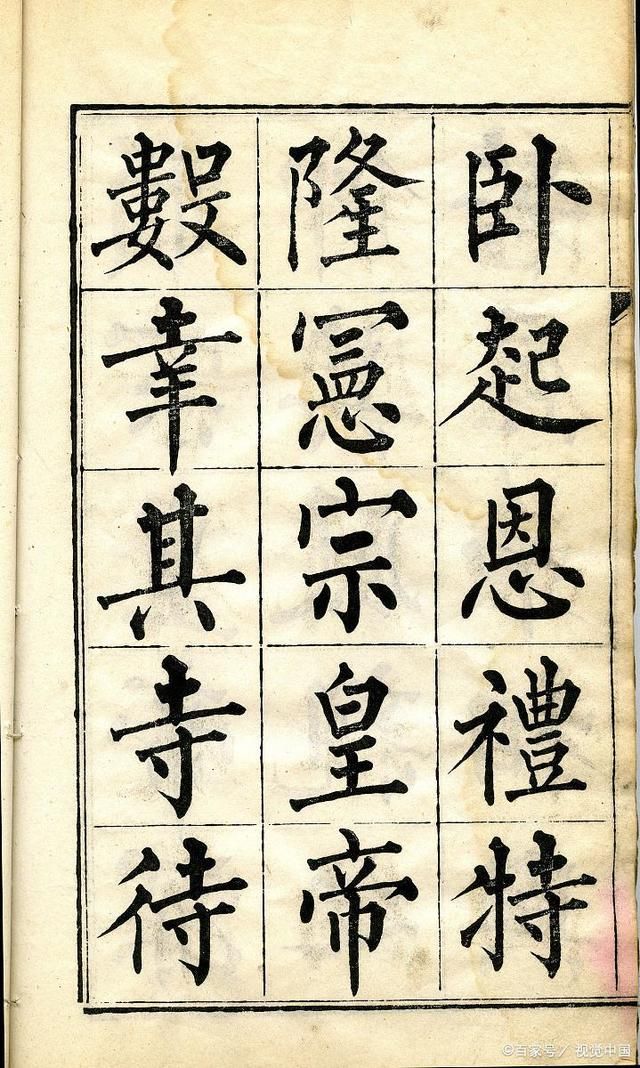 卧起恩禮特
隆憲宗皇帝
數幸其寺待
©百家号/视觉中国